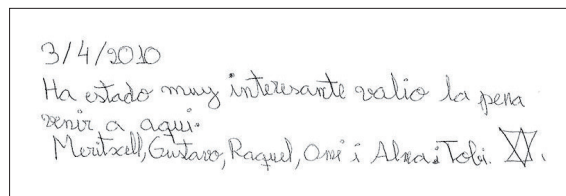 3/4/2010
Ha estado muy interesante valio la pena
venir a aqui.
Meritxell, Gustavo, Raquel, Omi i Alna i Tobi.